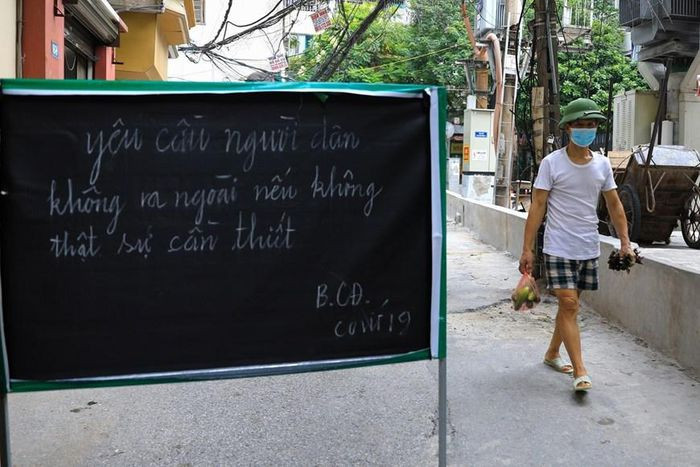 yêu cầu người dân
không ra ngoài nếu không
thật sự cần thiết
B.CĐ.
covit 19